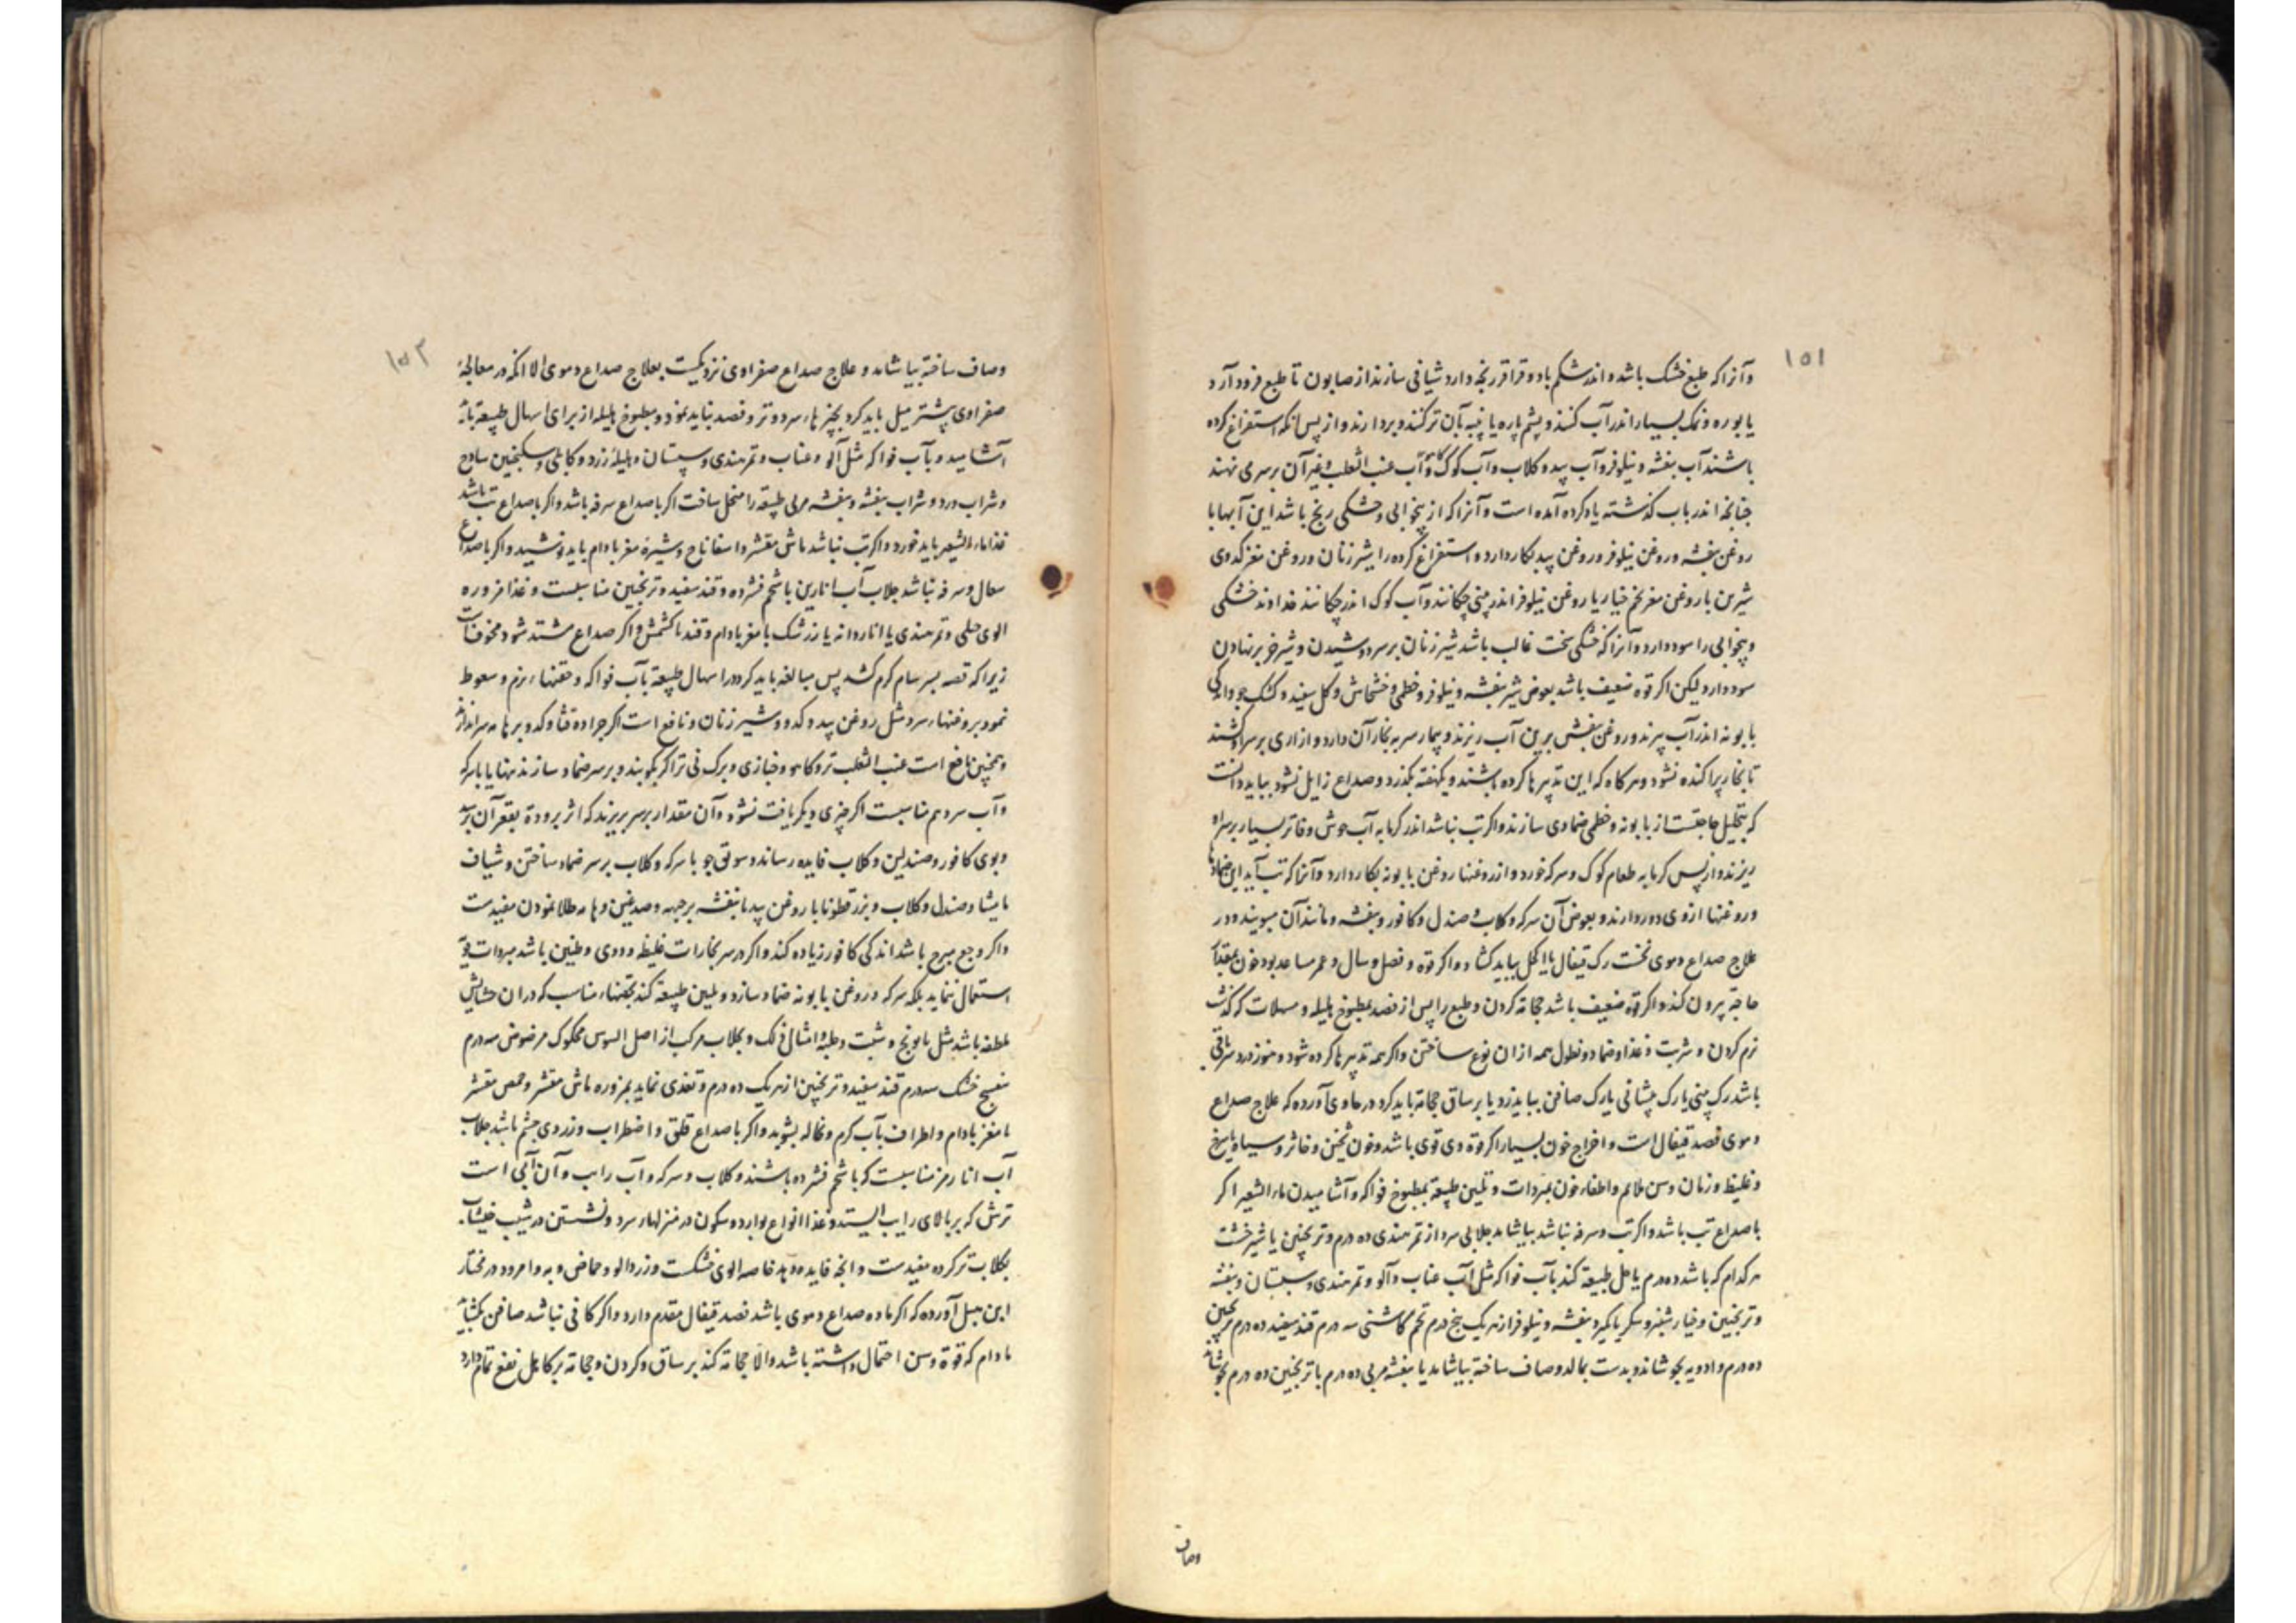 ۱۵۱
وآنرا که طبع خشک باشد و اندر شکم باد و قراقر رنجه دارد شیافی سازند از صابون تا طبع فرود آرد
یا بوره و نمک بسیار اندر آب کنند و پشم پاره یا پنبه بآن تر کنند و بردارند و از پس آنکه استفراغ کرده
باشند آب بنفشه و نیلوفر و آب بید و کلاب و آب کوک و آب عنب الثعلب و غیر آن بر سر می نهند
چنانچه اندر باب کذشته یاد کرده آمده است و آنرا که از بیخوابی و خشکی رنج باشد این آبها با
روغن بنفشه و روغن نیلوفر و روغن بید بکار دارد و استفراغ کرده را شیر زنان و روغن مغز کدوی
شیرین یا روغن مغز تخم خیار یا روغن نیلوفر اندر بینی چکانند و آب کوک اندر چکانند خداوند خشکی
و بیخوابی را سود دارد و آنرا که خشکی سخت غالب باشد شیر زنان بر سر دوشیدن و شیر خر بر نهادن
سود دارد لیکن اکر قوة ضعیف باشد بعوض شیر بنفشه و نیلوفر و خطمی و خشخاش و کل سفید و کشک جو و اندکی
بابونه اندر آب بپزند و روغن بنفش برین آب ریزند و بیمار سر به بخار آن دارد و ازاری بر سر او کشند
تا بخار پراکنده نشود و هرکاه که این تدبیرها کرده باشند و یکهفته بکذرد و صداع زایل نشود بباید دانست
که بتحلیل حاجتست از بابونه و خطمی ضمادی سازند و اکر تب نباشد اندر کرمابه آب خوش و فاتر بسیار بر سر او
ریزند و از پس کرمابه طعام کوک و سرکه خورد و از روغنها روغن بابونه بکار دارد و آنرا که تب آید این ضمادها
و روغنها ازوی دور دارند و بعوض آن سرکه و کلاب و صندل و کافور و بنفشه و مانند آن میبویند و در
علاج صداع دموی نخست رک قیفال یا اکحل بباید کشاد و اکر قوة و فصل و سال و عمر مساعد بود خون بمقدار
حاجة بیرون کند و اکر قوة ضعیف باشد حجامة کردن و طبع را پس از فصد بمطبوخ هلیله و مسهلات که کذشت
نرم کردن و شربت و غذا و ضماد و نطول همه ازان نوع ساختن و اکر همه تدبیرها کرده شود و هنوز درد سر باقی
باشد رک بینی یا رک پیشانی یا رک صافن بباید زد یا بر ساق حجامة باید کرد در حاوی آورده که علاج صداع
دموی فصد قیفال است و اخراج خون بسیار اکر قوة وی قوی باشد و خون ثخین و خاثر و سیاه یا سرخ
و غلیظ و زمان و سن ملایم و اطفاء خون بمبردات و تلیین طبیعة بمطبوخ فواکه و آشامیدن ماء الشعیر اکر
با صداع تب باشد و اکر تب و سرفه نباشد بیاشامد جلابی سرد از تمر هندی ده درم و ترنجبین یا شیرخشت
هر کدام که باشد ده درم یا حل طبیعة کند بآب فواکه مثل آب عناب و آلو و تمر هندی و سپستان و بنفشه
و ترنجبین و خیار شنبر و سکر یا بکیرد بنفشه و نیلوفر از هر یک پنج درم تخم کاسنی سه درم قند سفید ده درم ترنجبین
ده درم و ادویه بجوشاند و بدست بمالد و صاف ساخته بیاشامد یا بنفشه مربی ده درم با ترنجبین ده درم بجوشاند
وصاف
۱۵۲
وصاف ساخته بیاشامد و علاج صداع صفراوی نزدیکست بعلاج صداع دموی الا آنکه در معالجهٔ
صفراوی بیشتر میل باید کرد بچیزهاء سرد و تر و فصد نباید نمود و مطبوخ هلیله از برای اسهال طبیعة باید
آشامید و بآب فواکه مثل آلو و عناب و تمر هندی و سپستان و هلیلهٔ زرد و کابلی و سکنجبین ساذج
و شراب ورد و شراب بنفشه و بنفشه مربی طبیعة را منحل ساخت اکر با صداع سرفه باشد و اکر با صداع تب باشد
غذا ماء الشعیر باید خورد و اکر تب نباشد ماش مقشر و اسفاناخ و شیرهٔ مغز بادام باید نوشید و اکر با صداع
سعال و سرفه نباشد جلاب آب انارین با شحم فشرده و قند سفید و ترنجبین مناسبست و غذا مزوره
الوی حلبی و تمر هندی یا اناردانه یا زرشک با مغز بادام و قند یا کشمش و اکر صداع مشتد شود مخوفست
زیرا که قصه بسرسام کرم کشد پس مبالغه باید کرد در اسهال طبیعة بآب فواکه و حقنهاء نرم و سعوط
نمود بروغنهاء سرد مثل روغن بید و کدو و شیر زنان و نافع است اکر جراده قثا و کدو بر هامه سر اندازند
و همچنین نافع است عنب الثعلب تر و کاهو و خبازی و برک نی تر اکر بکوبند و بر سر ضماد سازند تنها یا با سرکه
و آب سرد هم مناسبست اکر چیزی دیکر یافت نشود و آن مقدار بر سر بریزند که اثر برودة بقعر آن برسد
و بوی کافور و صندلین و کلاب فایده رساند و سویق جو با سرکه و کلاب بر سر ضماد ساختن و شیاف
مامیثا و صندل و کلاب و بزر قطونا با روغن بید یا بنفشه بر جبهه و صدغین و هامه طلا نمودن مفیدست
و اکر وجع مبرح باشد اندکی کافور زیاده کند و اکر در سر بخارات غلیظ و دوی و طنین باشد مبردات قویه
استعمال ننماید بلکه سرکه و روغن بابونه ضماد سازد و تلیین طبیعة کند بحقنهاء مناسب که دران حشایش
ملطفه باشد مثل بابونج و شبت و حلبه و امثال ذلک و بجلاب مرکب از اصل السوس محکوک مرضوض سه درم
بنفسج خشک سه درم قند سفید و ترنجبین از هر یک ده درم و تغذی نماید بمزوره ماش مقشر و حمص مقشر
با مغز بادام و اطراف بآب کرم و نخاله بشوید و اکر با صداع قلق و اضطراب و زردی چشم باشد جلاب
آب انار مز مناسبست که با شحم فشرده باشند و کلاب و سرکه و آب رایب و آن آبی است
ترش که بر بالای رایب ایستد و غذا انواع بوارد و سکون در منزلهاء سرد و نشستن در شیب خیشاب
بکلاب تر کرده مفیدست و انچه فایده دهد خاصه الوی خشکست و زردالو و حماض و به و امرود در مختار
ابن هبل آورده که اکر ماده صداع دموی باشد فصد قیفال مقدم دارد و اکر کافی نباشد صافن بکشاید
مادام که قوة و سن احتمال داشته باشد والا حجامة کند بر ساق و کردن و حجامة بر کاهل نفع تمام دارد